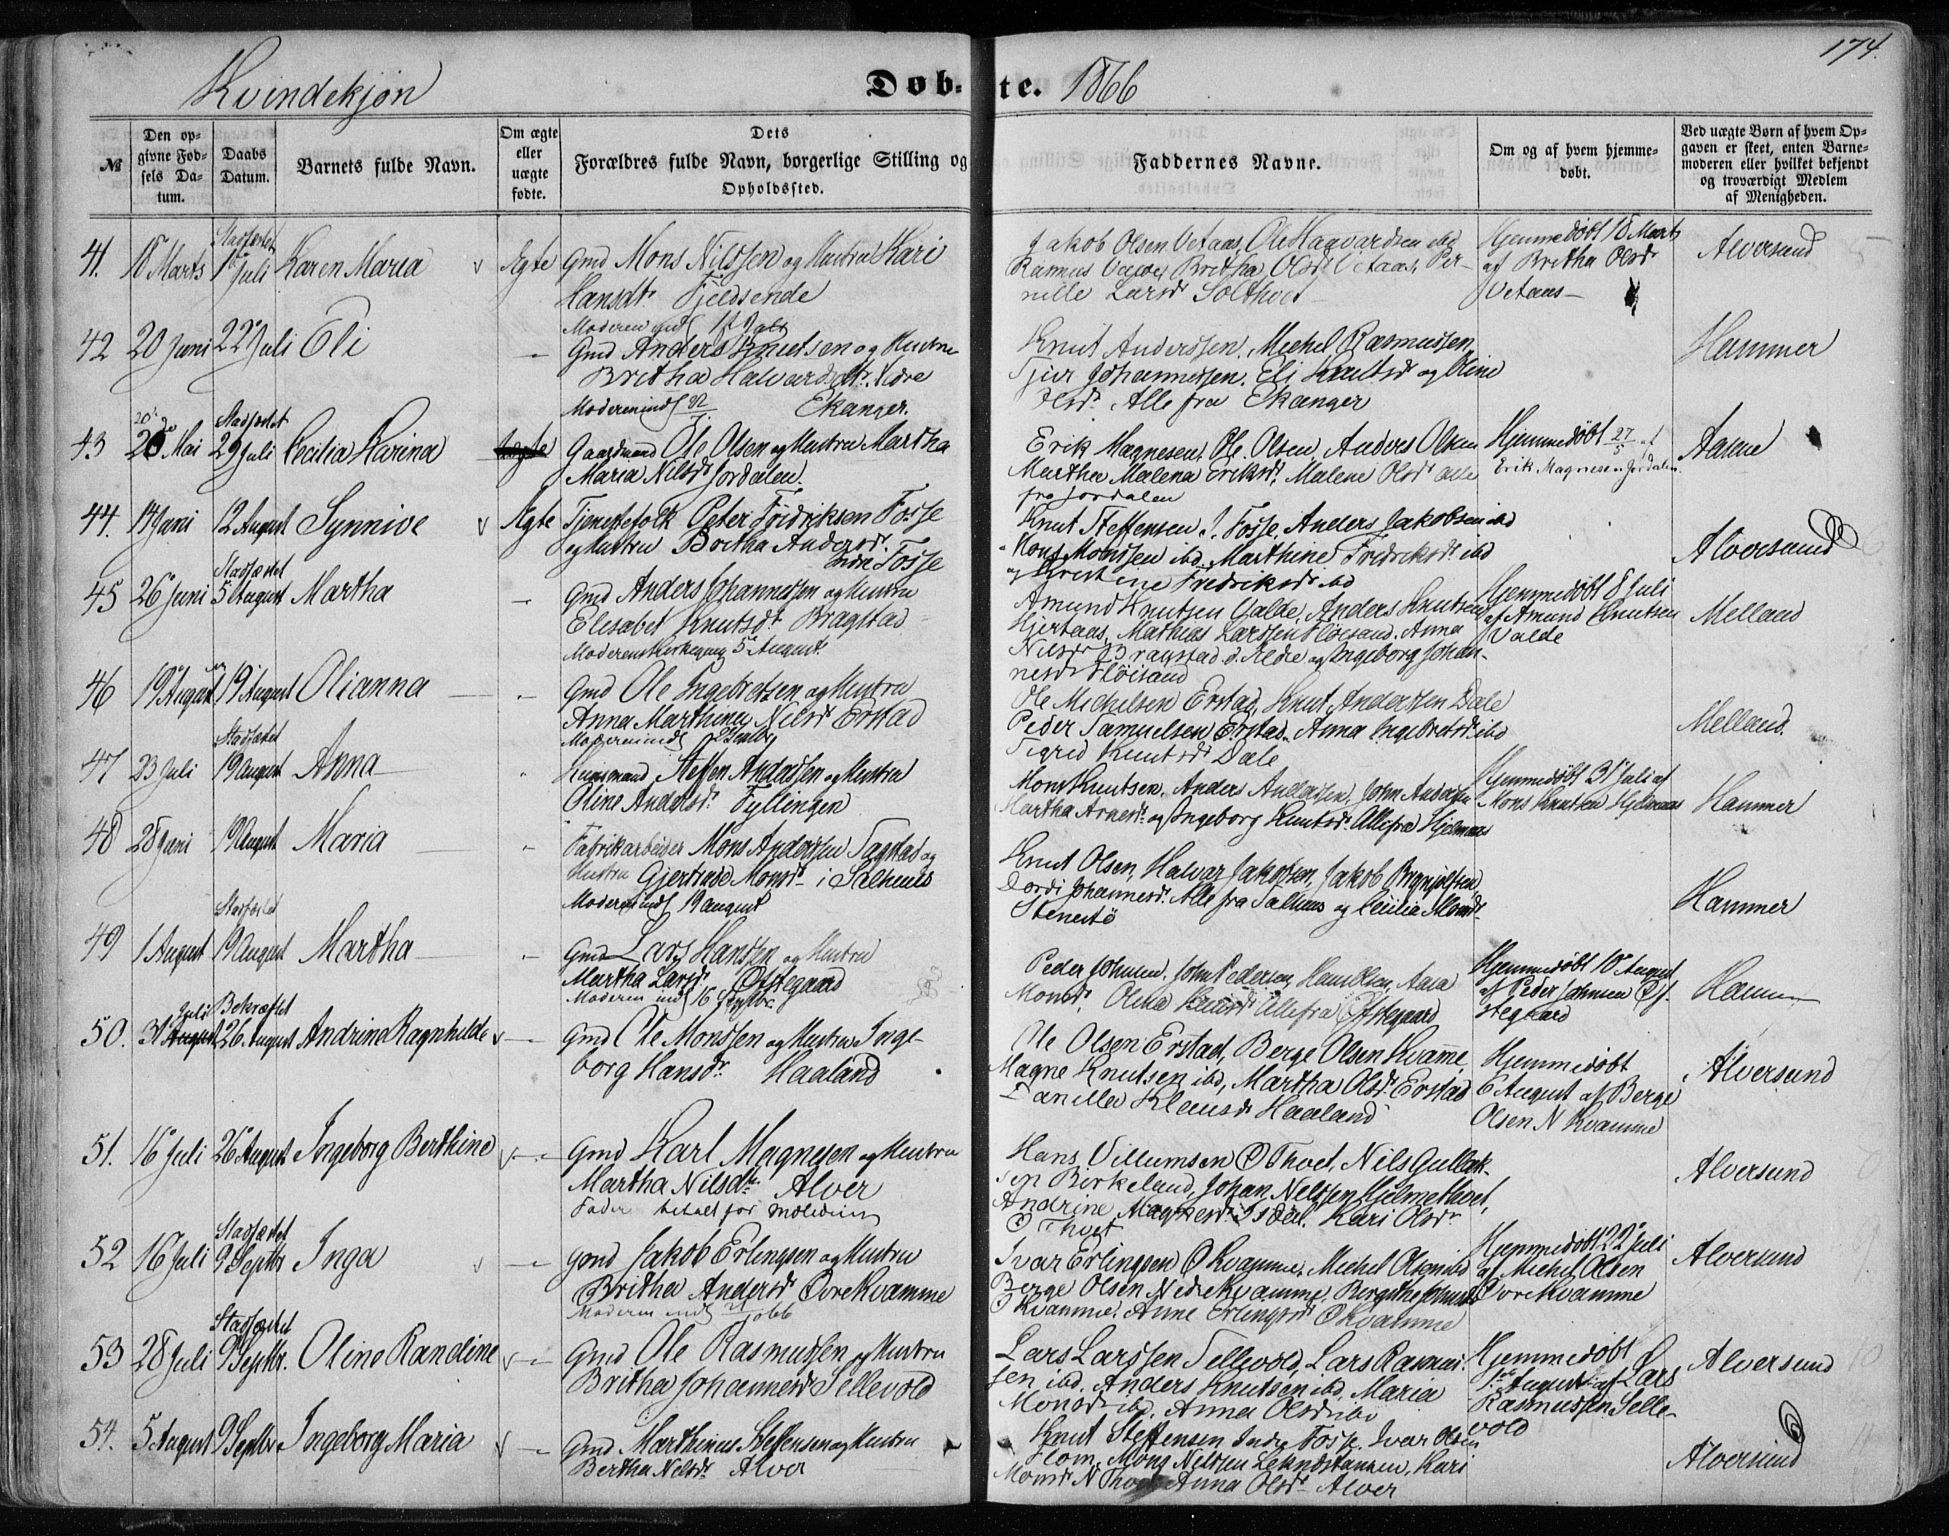 174.
Kvindekjøn
Døb-te. 1866
№
Den opgivne Fødsels Datum.
Daabs Datum.
Barnets fulde Navn.
Om ægte eller uægte fødte.
Dets Forældres fulde Navn, borgerlige Stilling og Opholdssted.
Faddernes Navne.
Om og af hvem hjemmedøbt.
Ved uægte Børn af hvem Opgaven er skeet, enten Barnemoderen eller hvilket bekjendt og troværdigt Medlem af Menigheden.
41. 18 Marts Stadfæstet 1ste Juli Karen Maria Ægte Gmd Mons Nilssen og Hustru Kari
Hansdr Fjeldsende
Jakob Olsen Vetaas, Ole Haavardsen ibd
Rasmus Britha Olsdr Vetaas, Per-
nille Larsdr Solthvet
Hjemmedøbt 18 Marts
af Britha Olsdr
Vetaas
Alversund
42 20 Juni 22 Juli Eli
Gmd Anders Knutsen og Hustru
Britha Halvardsdtr. Nedre
Ekanger.
Knut Anderssen, Michel Rasmussen,
Johannessen, Eli Knutsdr og Oline
Olsdr. Alle fra Ekanger
Hammer
43 26 Mai Stadfæstet 29 Juli Cecilia Karina Gaardmand Ole Olsen og Hustru Martha
Maria Nilsdr Jordalen.
Erik Magnesen, Ole Olsen, Anders Olsen
Martha Malena Eriksdr, Malene Olsdr alle
fra Jordalen
Hjemmedøbt 27/5 af
Erik Magnesen Jordalen.
Aasene
44. 14 Juni 12 August Synnive Ægte Tjenestefolk Peter Fridriksen Fosse
og Hustru Britha Andersdr.
Indre Fosse
Knut Steffensen I. Fosse, Anders Jakobsen ibd
Mons Monssen ibd, Marthine Fredriksdr ibd
og Kristine Fredriksdr ibd
Alversund
45 26 Juni Stadfæstet 5 August Martha
Gmd Anders Johannessen og Hustru
Elesabet Knutsdr Bragstad
Moderens Kirkegang 5 August.
Amund Knutsen Valde, Anders Knutsen
Hjertaas, Mathias Larssen Fløisand. Anna
Nilsdr Bragstad og Ingeborg Johan-
nesdr Fløisand
Hjemmedøbt 8 Juli
af Amund Knutsen
Valde
Melland
46 19 August 19 August Olianna
Gmd Ole Ingebretsen og Hustru
Anna Marthina Nilsdr Erstad
Ole Michelsen Erstad, Knut Anderssen Dale
Peder Samuelsen Erstad, Anna Ingebretsdr ibd
Sigrid Knutsdr Dale
Melland.
47 23 Juli Stadfæstet 19 August Anna
Huusmand Steffen Anderssen og Hustru
Oline Andersdr. Fyllingen
Mons Knutsen, Anders Andersen, John Andersen
Martha Arnesdr. og Ingeborg Knutsdr. Alle fra Hjelmaas
Hjemmedøbt 31 Juli af
Mons Knutsen Hjelmaas
Hammer
48 28 Juni 19 August Maria
Fabrikarbeider Mons Anderssen Tagstad og
Hustru Gjertrude Monsdr i Salhuus
Moderen indl 19 august
Knut Olsen, Halvar Jakobsen, Jakob Brynjolfsen,
Dordi Johannesdr. Alle fra Salhuus og Cecilia Monsdr
Stenestø
Hammer
49 1 August Stadfæstet 19 August Martha
Gmd Lars Hanssen og Hustru
Martha Larsdr. Oftegaard
Moderen indl 16 Septbr.
Peder Johnsen, John Pedersen, Hans Olsen, Aasa
Monsdr, Olina Knutsdr Alle fra Oftegaard
Hjemmedøbt 10 August
af Peder Johnsen Of-
tegaard
Hammer
50. 31 Juli Bekræftet 26 August Andrine Ragnhilde
Gmd Ole Monssen og Hustru Inge-
borg Hansdr. Haaland
Ole Olsen Erstad, Berge Olsen Kvamme,
Magne Knutsen ibd, Martha Olsdr Erstad
Danilla Klausdr Haaland
Hjemmedøbt
6 August af Berge
Olsen N Kvamme
Alversund
51. 16 Juli 26 August Ingeborg Berthine
Gmd Karl Magnesen og Hustru
Martha Nilsdr. Alver
Fader betalt for
Hans Villumsen Ø Thvet, Nils Gullak-
sen Birkeland, Johan Nilssen Hjelmethvet,
Andrine Magnesdr Isdal. Kari Olsdr
Ø Thvet
Alversund
52 16 Juli Stadfæstet 9 Septbr Inga
Gmd Jakob Erlingsen og Hustru
Britha Andersdr Øvre Kvamme
Ivar Erlingsen Ø Kvamme, Michel Olsen ibd
Berge Olsen Nedre Kvamme, Bergithe
Ø Kvamme. Anne Erlingsdr Ø Kvamme
Hjemmedøbt 22 Juli
af Michel Olsen
Øvre Kvamme
Alversund
53 28 Juli Stadfæstet 9 Septbr. Oline Randine
Gmd Ole Rasmussen og Hustru
Britha Johannesdr Sellevold
Lars Larssen Sellevold, Lars Rasmus-
sen ibd. Anders Knutsen ibd, Maria
Monsdr ibd. Anna Olsdr ibd
Hjemmedøbt
1ste August af Lars
Rasmussen Selle-
vold
Alversund
54. 5 August 9 Septbr Ingeborg Maria
Gmd Marthinus Steffensen og Hustru
Bertha Nilsdr Alver
Knut Steffensen Indre Fosse. Ivar Olsen
Flom. Mons Nilssen, Kari
Monsdr N Thvet Anna Olsdr Alver
Alversund